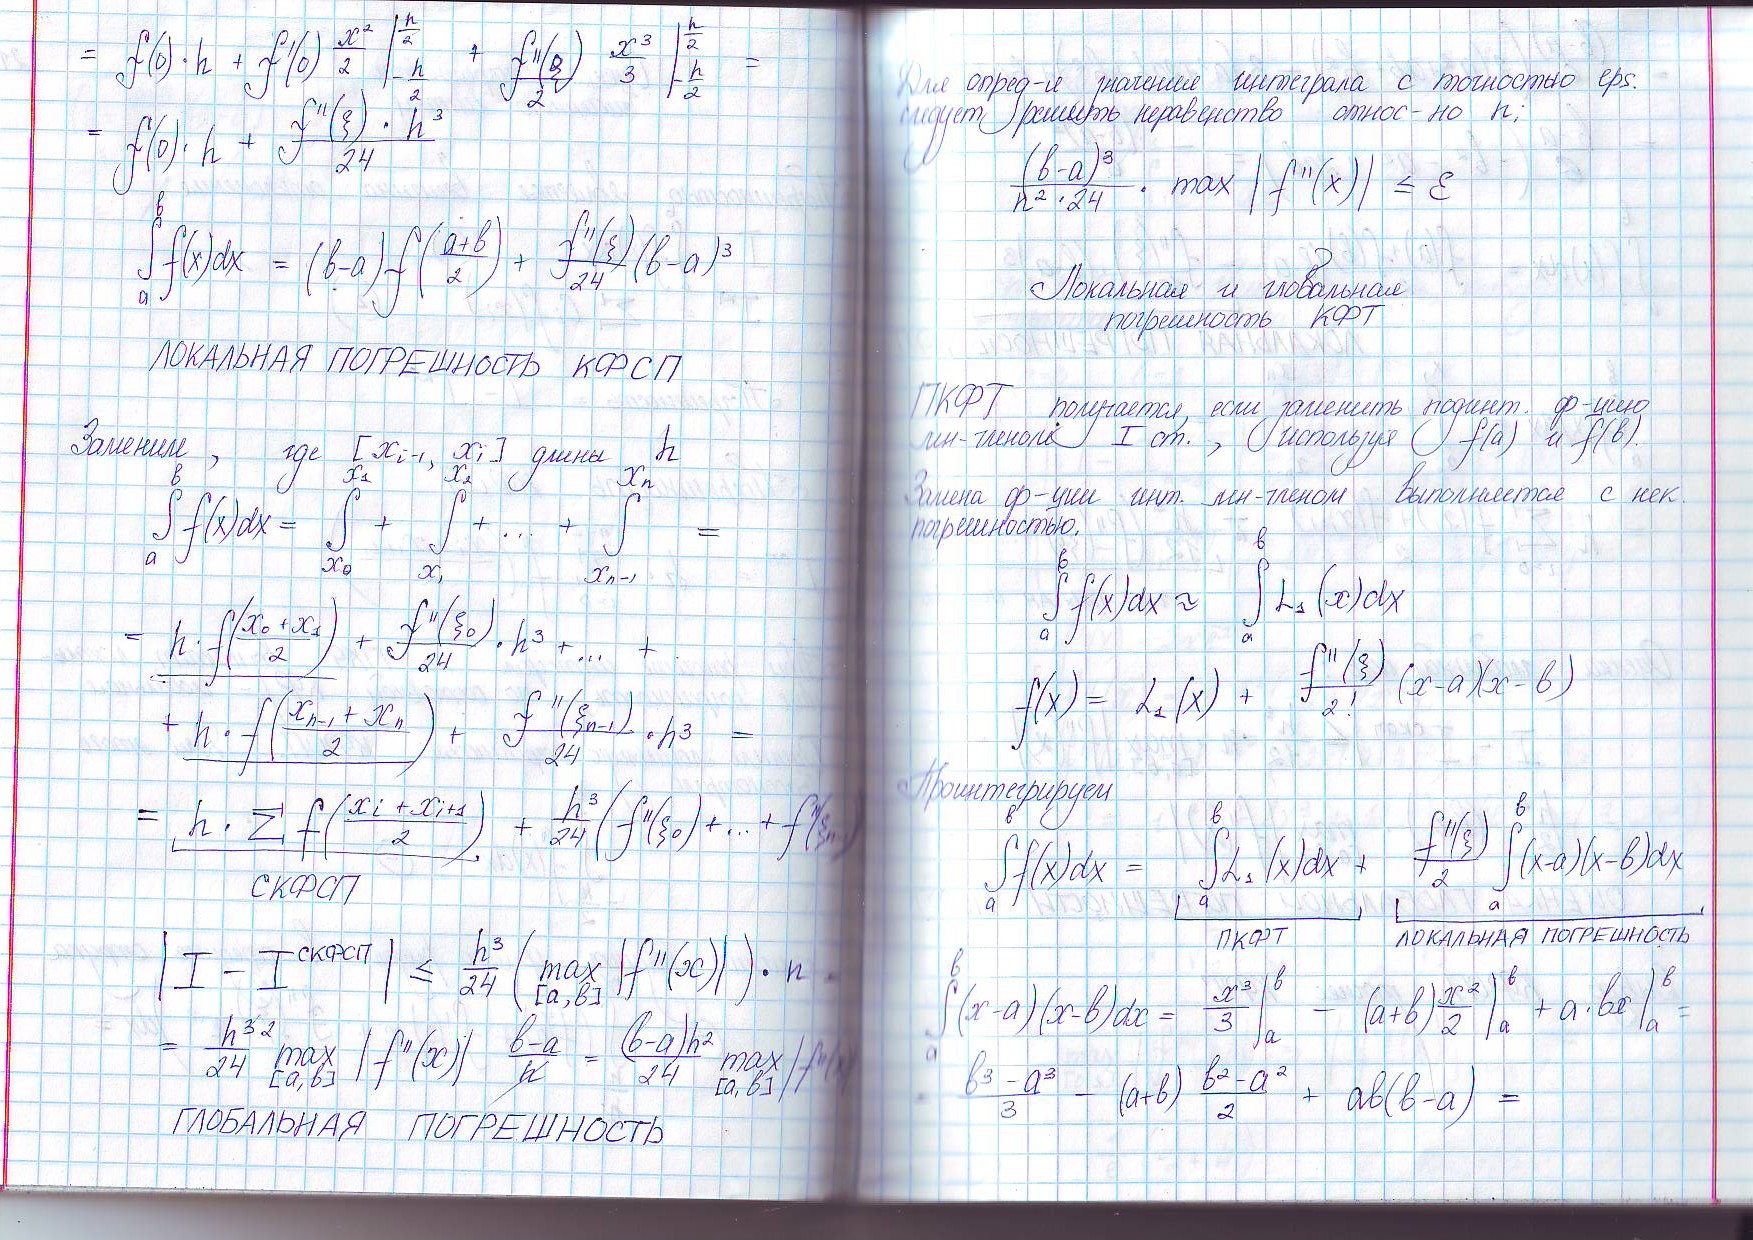 = f(0)·h + f'(0) x²/2 |_{-h/2}^{h/2} + f''(ξ)/2 x³/3 |_{-h/2}^{h/2} =
= f(0)·h + f''(ξ)·h³/24
∫_a^b f(x)dx = (b-a)f((a+b)/2) + f''(ξ)/24 (b-a)³
ЛОКАЛЬНАЯ ПОГРЕШНОСТЬ КФСП
Заменим, где [x_{i-1}, x_i] длины h
∫_a^b f(x)dx = ∫_{x_0}^{x_1} + ∫_{x_1}^{x_2} + ... + ∫_{x_{n-1}}^{x_n} =
= h·f((x_0+x_1)/2) + f''(ξ_0)/24 ·h³ + ... +
+ h·f((x_{n-1}+x_n)/2) + f''(ξ_{n-1})/24 ·h³ =
= h·Σ f((x_i+x_{i+1})/2) + h³/24 (f''(ξ_0)+...+f''(ξ_{n-1}
СКФСП
|I - I^{СКФСП}| ≤ h³/24 (max_{[a,b]} |f''(x)|)·n
= h^{3 2}/24 max_{[a,b]} |f''(x)| (b-a)/h = (b-a)h²/24 max_{[a,b]} |f''(x)
ГЛОБАЛЬНАЯ ПОГРЕШНОСТЬ
Для опред-я значения интеграла с точностью eps.
следует решить неравенство относ-но n;
(b-a)³/(n²·24) · max |f''(x)| ≤ ε
Локальная и глобальная
погрешность КФТ
ПКФТ получается, если заменить подинт. ф-цию
мн-членом I ст., используя f(a) и f(b).
Замена ф-ции инт. мн-членом выполняется с нек.
погрешностью.
∫_a^b f(x)dx ≈ ∫_a^b L_1(x)dx
f(x) = L_1(x) + f''(ξ)/2! (x-a)(x-b)
Проинтегрируем
∫_a^b f(x)dx = ∫_a^b L_1(x)dx + f''(ξ)/2 ∫_a^b (x-a)(x-b)dx
ПКФТ ЛОКАЛЬНАЯ ПОГРЕШНОСТЬ
∫_a^b (x-a)(x-b)dx = x³/3 |_a^b - (a+b) x²/2 |_a^b + a·bx |_a^b =
= (b³-a³)/3 - (a+b) (b²-a²)/2 + ab(b-a) =